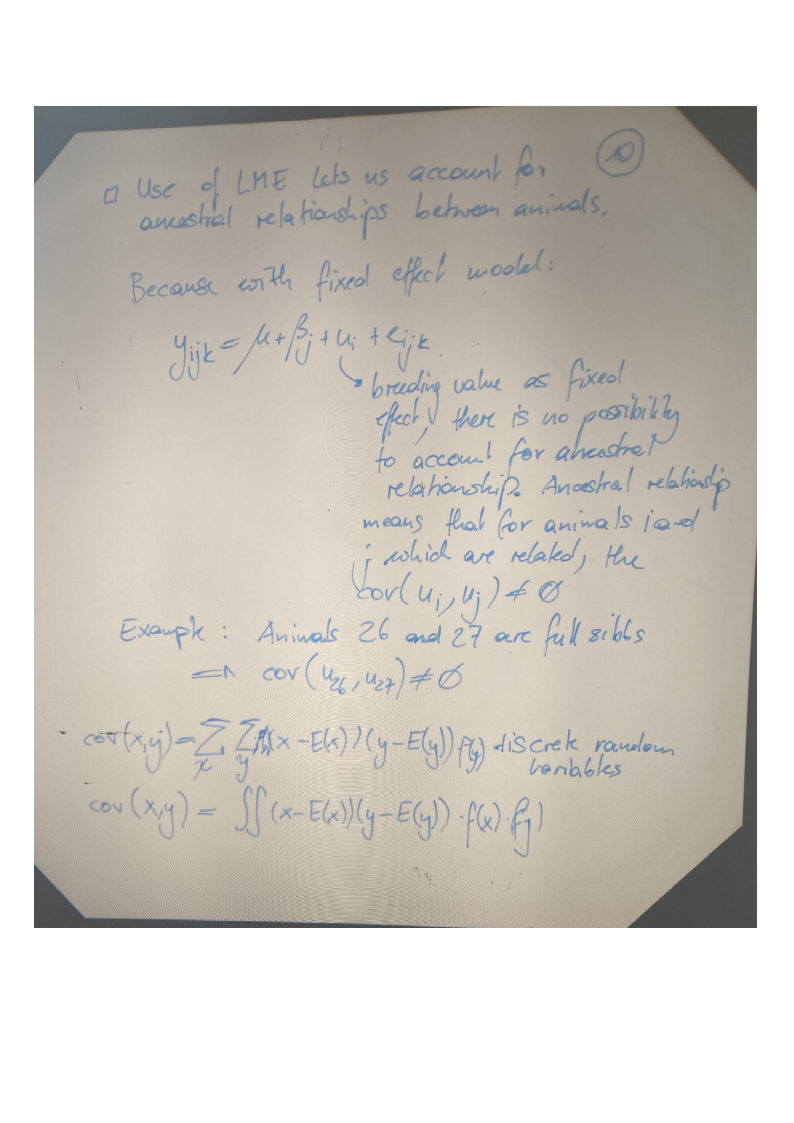 10
□ Use of LME lets us account for
ancestral relationships between animals.
Because with fixed effect model:
y_ijk = μ + β_j + u_i + e_ijk
breeding value as fixed
effect, there is no possibility
to account for ancestral
relationship. Ancestral relationship
means that for animals i and
j which are related, the
cov(u_i, u_j) ≠ 0
Example: Animals 26 and 27 are full sibbs
⇒ cov(u_26, u_27) ≠ 0
cov(x,y) = Σ_x Σ_y (x - E(x))(y - E(y)) f(y) discrete random
variables
cov(x,y) = ∬ (x - E(x))(y - E(y)) · f(x) · f(y)